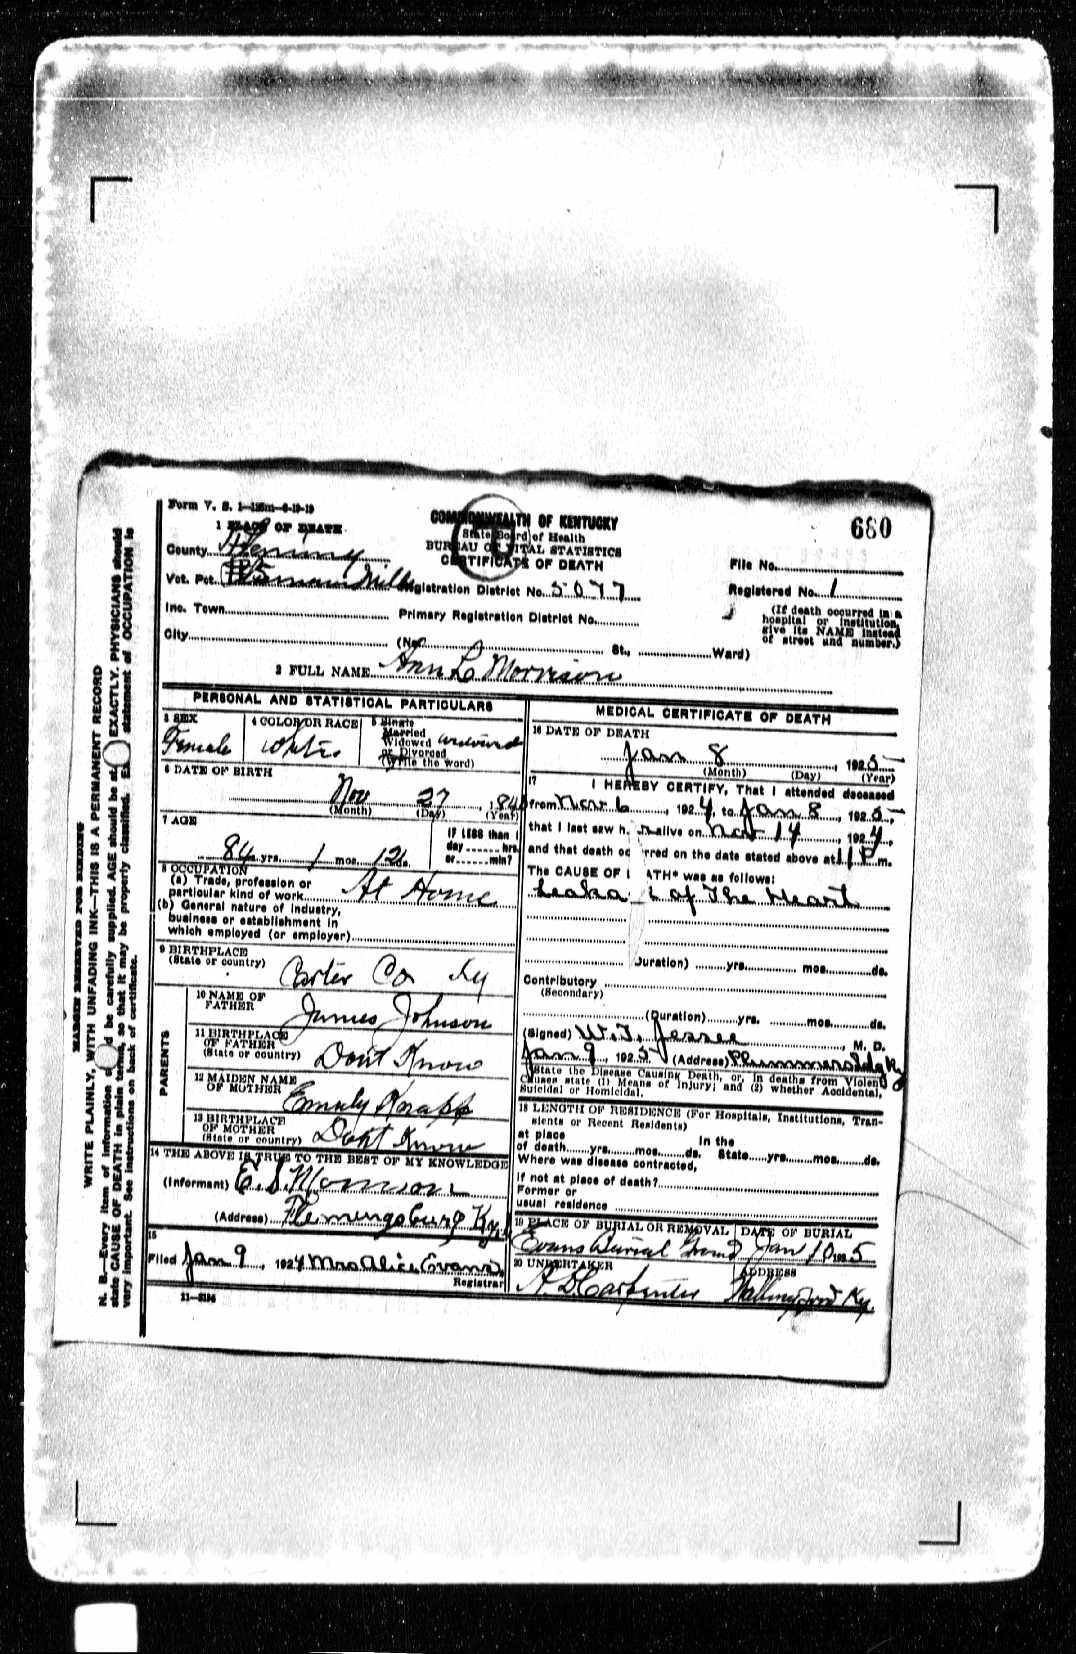 Form V. S. 1—125m—6-19-19
680
COMMONWEALTH OF KENTUCKY
State Board of Health
BUREAU OF VITAL STATISTICS
CERTIFICATE OF DEATH
1 PLACE OF DEATH
County Fleming
Vot. Pct. Mills
Registration District No. 5077
File No.
Registered No. 1
Inc. Town
Primary Registration District No.
(If death occurred in a
hospital or institution,
give its NAME instead
of street and number.)
City (No. St., Ward)
2 FULL NAME Ann L Morrison
PERSONAL AND STATISTICAL PARTICULARS
3 SEX
Female
4 COLOR OR RACE
White
5 Single
Married
Widowed
or Divorced
(Write the word)
widowed
6 DATE OF BIRTH
Nov 27, 1840
(Month) (Day) (Year)
7 AGE
84 yrs. 1 mos. 12 ds.
IF LESS than 1
day ...... hrs.
or ...... min?
8 OCCUPATION
(a) Trade, profession or
particular kind of work At Home
(b) General nature of Industry,
business or establishment in
which employed (or employer)
9 BIRTHPLACE
(State or country) Carter Co Ky
PARENTS
10 NAME OF
FATHER James Johnson
11 BIRTHPLACE
OF FATHER
(State or country) Dont Know
12 MAIDEN NAME
OF MOTHER Emily Knapp
13 BIRTHPLACE
OF MOTHER
(State or country) Dont Know
14 THE ABOVE IS TRUE TO THE BEST OF MY KNOWLEDGE
(Informant) E. S. Morrison
(Address) Flemingsburg Ky.
15
Filed Jan 9, 1924 Mrs Alice Evans
Registrar
11—3184
MEDICAL CERTIFICATE OF DEATH
16 DATE OF DEATH
Jan 8, 1925
(Month) (Day) (Year)
17 I HEREBY CERTIFY, That I attended deceased
from Nov 6, 1924, to Jan 8, 1925,
that I last saw h alive on Nov 14, 1924,
and that death occurred on the date stated above at 11 P m.
The CAUSE OF DEATH* was as follows:
Leaka of The Heart
(Duration) yrs. mos. ds.
Contributory
(Secondary)
(Duration) yrs. mos. ds.
(Signed) W. T. Jessee, M. D.
Jan 9, 1925 (Address) Plummers Ldg Ky
*State the Disease Causing Death, or, in deaths from Violent
Causes state (1) Means of Injury; and (2) whether Accidental,
Suicidal or Homicidal.
18 LENGTH OF RESIDENCE (For Hospitals, Institutions, Tran-
sients or Recent Residents)
at place In the
of death yrs. mos. ds. State yrs. mos. ds.
Where was disease contracted,
if not at place of death?
Former or
usual residence
19 PLACE OF BURIAL OR REMOVAL
Evans Burial Ground
DATE OF BURIAL
Jan 10 1925
20 UNDERTAKER
A D Carpenter
ADDRESS
Wallingford Ky.
MARGIN RESERVED FOR BINDING
WRITE PLAINLY, WITH UNFADING INK—THIS IS A PERMANENT RECORD
N. B.—Every item of information should be carefully supplied. AGE should be stated EXACTLY. PHYSICIANS should
state CAUSE OF DEATH in plain terms, so that it may be properly classified. Exact statement of OCCUPATION is
very important. See instructions on back of certificate.